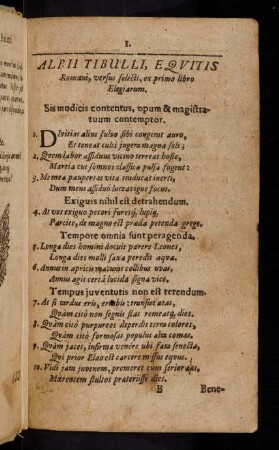 1.
ALBII TIBULLI, EQVITIS
Romani, versus selecti, ex primo libro
Elegiarum.
Sis modicis contentus, opum & magistra-
tuum contemptor.
1. Divitias alius fulvo sibi congerat auro,
Et teneat culti jugera magna soli;
2. Quem labor assiduus vicino terreat hoste,
Martia cui somnos classica pulsa fugent:
3. Me mea paupertas vita traducat inerti,
Dum meus assiduo luceat igne focus.
Exiguis nihil est detrahendum.
4. At vos exiguo pecori furesq́, lupiq́,
Parcite, de magno est præda petenda grege.
Tempore omnia sunt peragenda.
5. Longa dies homini docuit parere Leones,
Longa dies molli saxa peredit aqua.
6. Annus in apricis maturat collibus uvas,
Annus agit certâ lucida signa vice.
Tempus juventutis non est terendum.
7. At si tardus eris, errabis: transiet ætas,
Quàm citò non segnis stat remeatq́, dies.
8. Quàm citò purpureos deperdit terra colores,
Quàm citò formosas populus alta comas.
9. Quàm jacet, infirmæ venêre ubi fata senectæ,
Qui prior Elæo est carcere missus equus.
10. Vidi jam juvenem, premeret cum serior ætas,
Mœrentem stultos præteriisse dies.
B Bene-